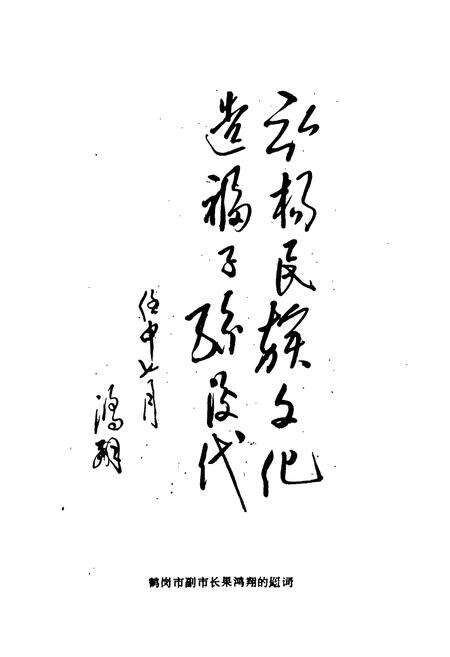 弘扬民族文化
造福子孫后代
壬申七月
鸿翔
鹤岗市副市长果鸿翔的题词